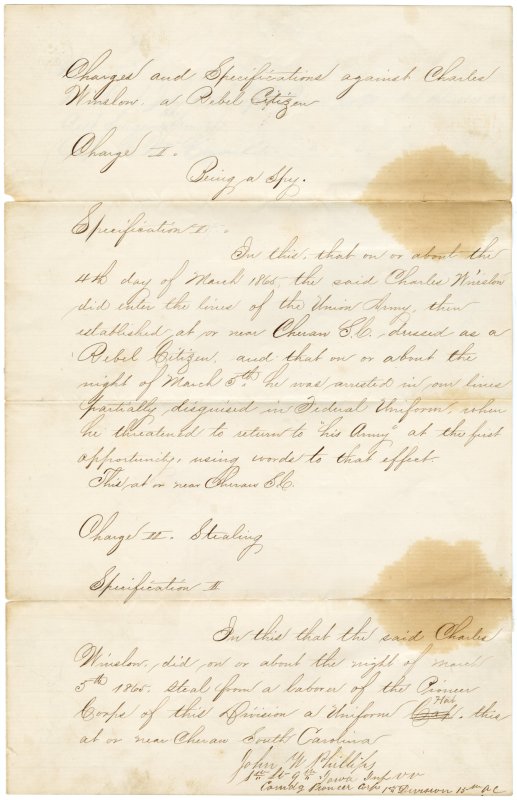 Charges and Specifications against Charles
Winslow, a Rebel Citizen
Charge I.
Being a Spy.
Specification I.
In this, that on or about the
4th day of March 1865, the said Charles Winslow
did enter the lines of the Union Army, then
established at or near Cheraw S.C. dressed as a
Rebel Citizen, and that on or about the
night of March 5th, he was arrested in our lines
partially disguised in Federal Uniform, when
he threatened to return to "his Army" at the first
opportunity, using words to that effect.
This, at or near Cheraw S.C.
Charge II. Stealing
Specification II
In this that the said Charles
Winslow, did on or about the night of March
5th 1865. steal from a laborer of the Pioneer
Corps of this Division a Uniform Hat, this
at or near Cheraw South Carolina
John W Phillips
1st Lt 9th Iowa Inf VV
Comdg Pioneer Corps 1st Division 15th A.C.